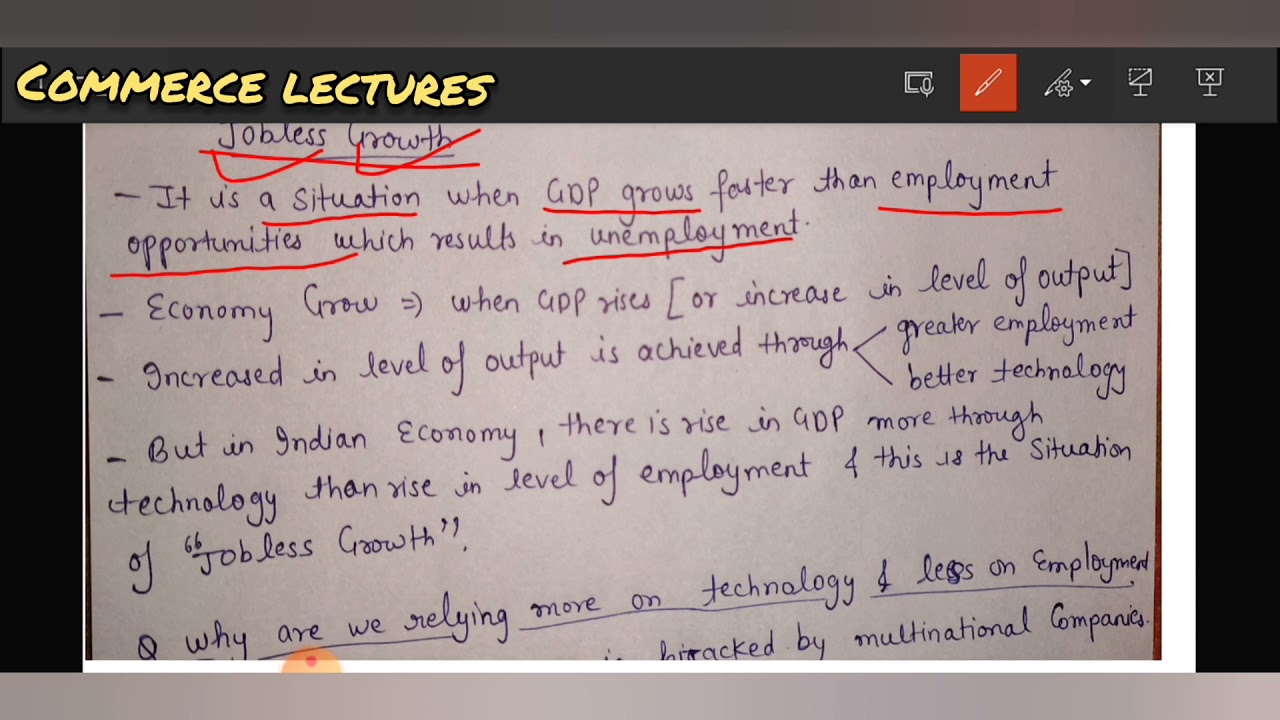 COMMERCE LECTURES
Jobless Growth
- It is a situation when GDP grows faster than employment
opportunities which results in unemployment.
- Economy Grow => when GDP rises [or increase in level of output]
- Increased in level of output is achieved through < greater employment
better technology
- But in Indian Economy, there is rise in GDP more through
technology than rise in level of employment & this is the situation
of "Jobless Growth".
Q why are we relying more on technology & less on Employment
by multinational Companies.